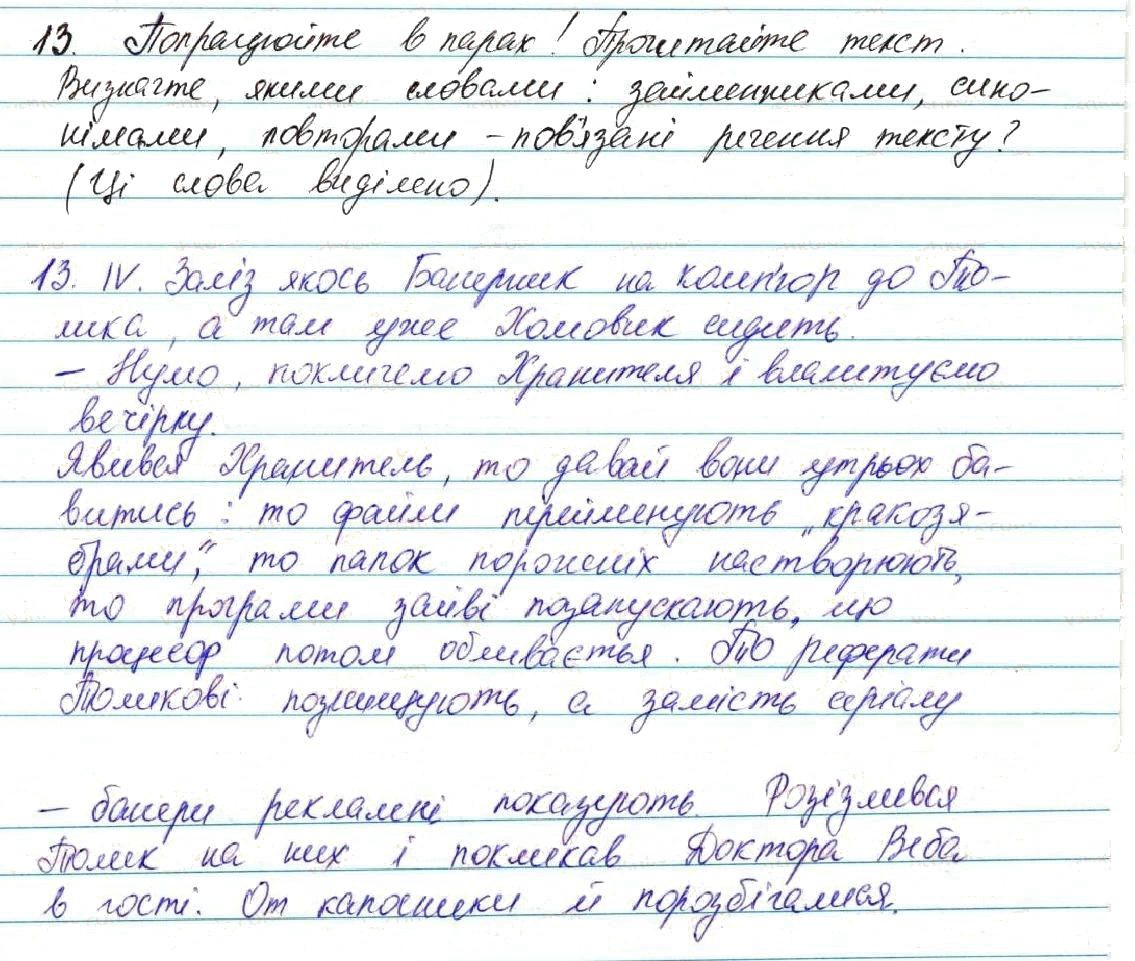 13. Попрацюйте в парах! Прочитайте текст.
Визначте, якими словами: займенниками, сино-
німами, повторами - пов'язані речення тексту?
(Ці слова виділено).
13. IV. Заліз якось Банерник на комп'ютер до То-
лика, а там уже Хомовик сидить.
- Нумо, покличемо Хранителя і влаштуємо
вечірку.
Явився Хранитель, то давай вони утрьох ба-
витись: то файли перейменують „кракозя-
брами", то папок порожніх настворюють,
то програми зайві позапускають, що
процесор потом обливається. То реферати
Толикові познищують, а замість серіалу
- банери рекламні показують. Розізлився
Толик на них і покликав Доктора Веба
в гості. От капосники й порозбігалися.